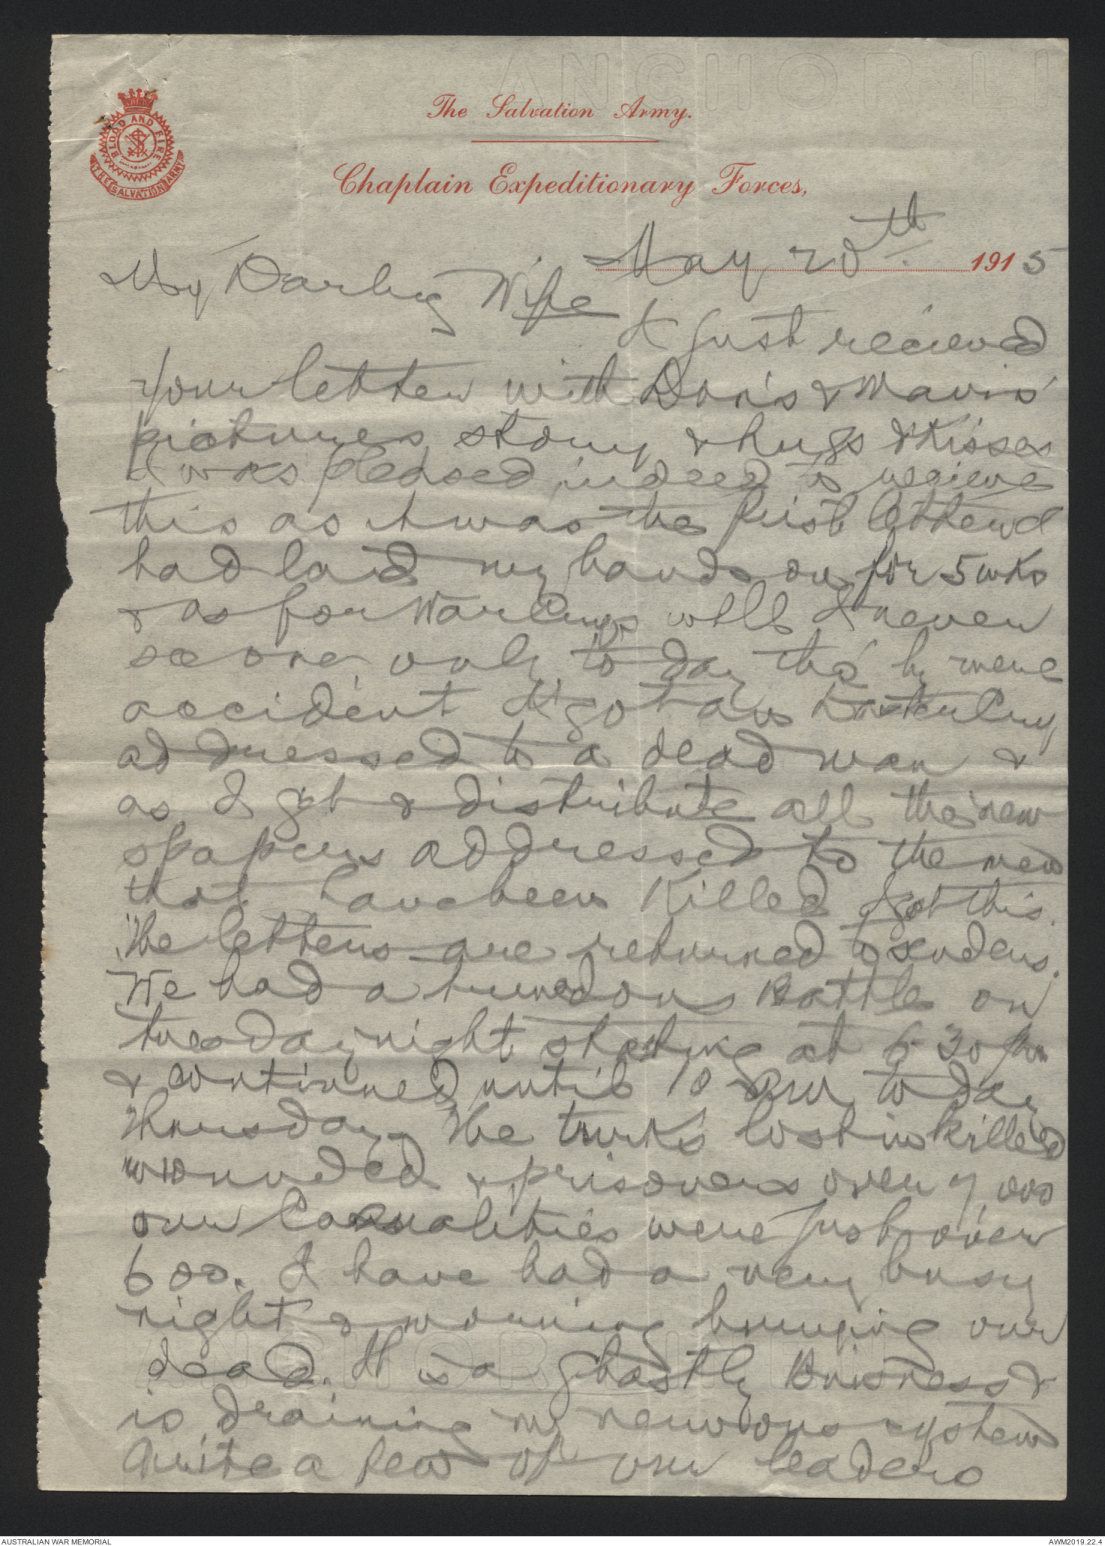 The Salvation Army.
Chaplain Expeditionary Forces,
BLOOD AND FIRE
THE SALVATION ARMY
May 20th. 1915
My Darling Wife
I just recieved
your letter with Dora's & Mavis'
pictures story & hugs & Kisses
I was pleased indeed to recieve
this as it was the first letter I
had laid my hands on for 5 wks
& as for War Crys well I never
see one only to day tho' by mere
accident I got an
addressed to a dead man &
as I get & distribute all the new
spapers addressed to the men
that have been Killed I got this.
The letters are returned to senders.
We had a tremedous Battle on
tuesday night starting at 6-30 pm
& continued until 10 am to day
Thursday. The turks lost in killed
wounded & prisoners over 7,000
our Casualities were just over
600. I have had a very busy
night & morning burrying our
dead. It is a ghastly Buisness &
is draining my nervous system
Quite a few of our leaders
AUSTRALIAN WAR MEMORIAL
AWM2019.22.4